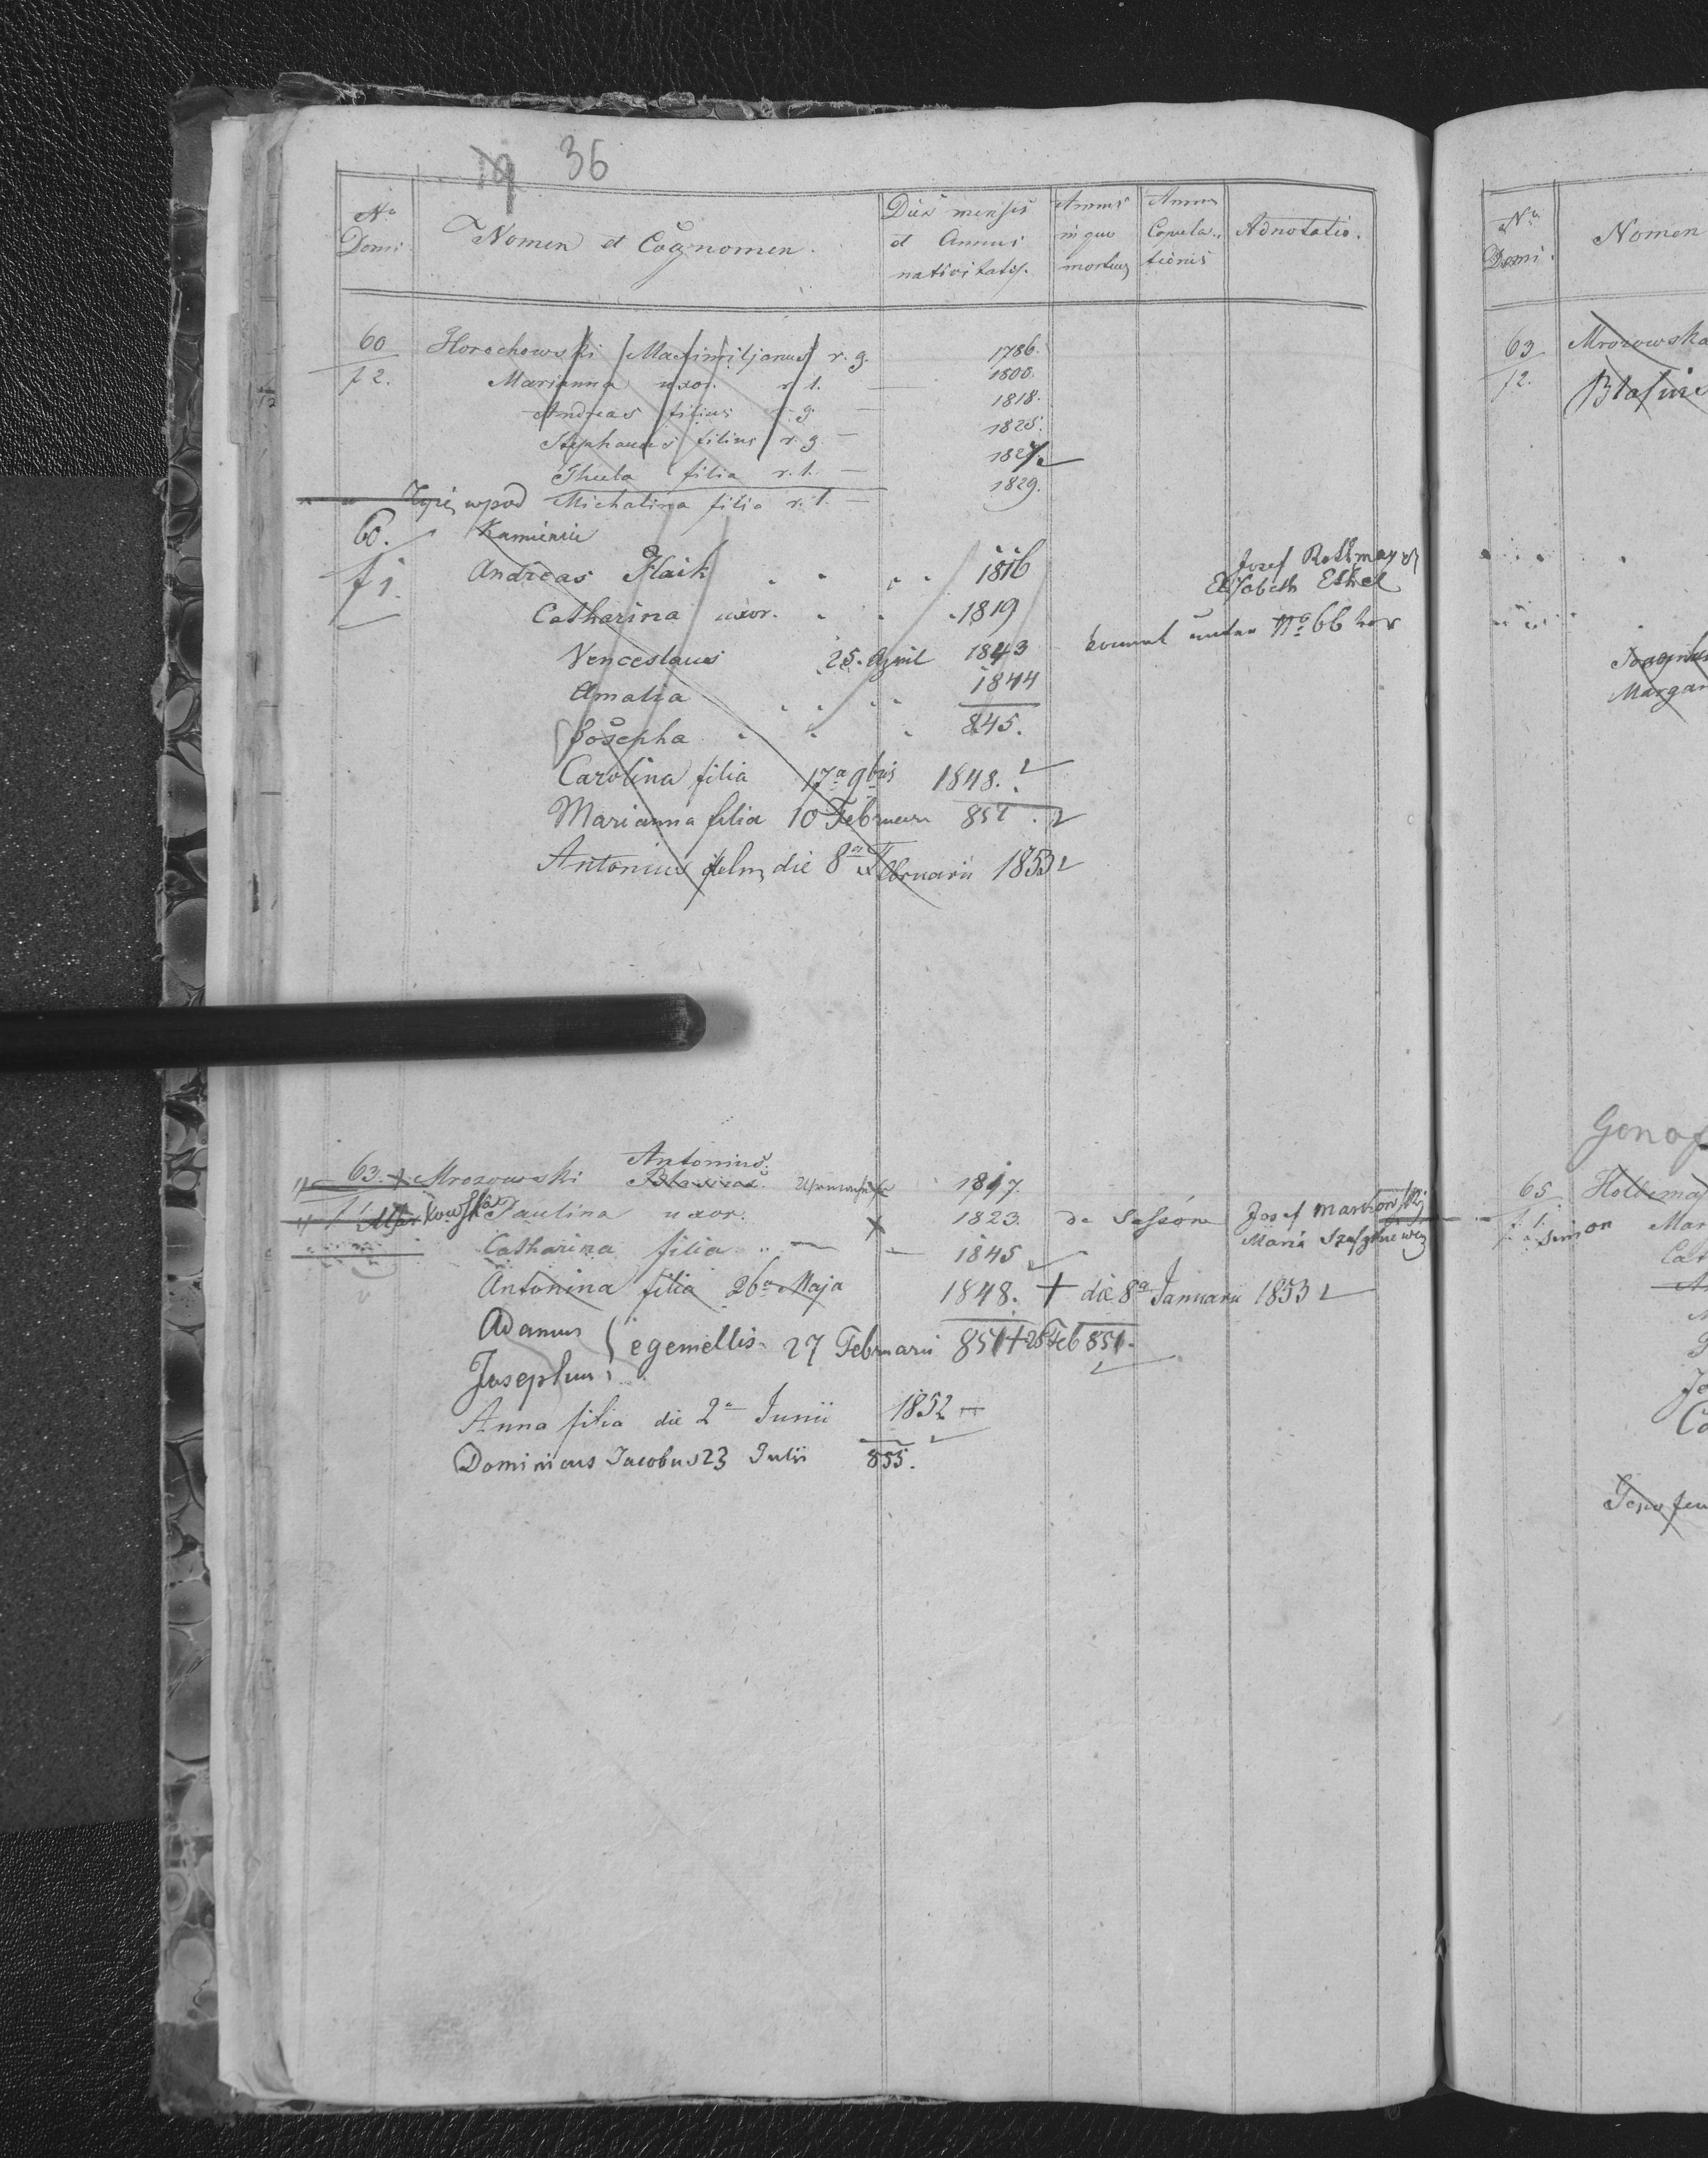 19 36
No Domi
Nomen et Cognomen.
Dies mensis et Annus nativitatis.
Annus in quo mortuus
Annus Copulationis
Adnotatio.
60 Horochowski Maximiljanus r. g. 1786.
f 2. Marianna uxor. r. l. — 1800.
Andreas filius r. g. — 1818.
Stephanus filius r. g. — 1825.
Thecla filia r. l. — 1827
Michalina filia r. l. — 1829.
60.
f 1. Andreas Flaik 1816 Josef
Elisabeth Ethel
Catharina uxor. 1819
Venceslaus 25. April 1843 kommt unter No 66 vor
Amalia 1844
Josepha 845.
Carolina filia 17a 9bris 1848.
Marianna filia 10 Februari 851.
Antonius die 8a Februarii 1853
63. Mrozowski Antonius. Blasius. 1817.
f 1 Paulina uxor. 1823. Josef Markowski
Maria
Catharina filia — 1845
Antonina filia 26a Maja 1848. + die 8a Januarii 1853
Adamus
Josephus egemellis 27 Februarii 851 + 28 Feb 851.
Anna filia die 2a Junii 1852
Dominicus Jacobus 23 Julii 855.
No Domi.
Nomen
63 Mrozowska
f 2.
Margar
65
f 1. Mar